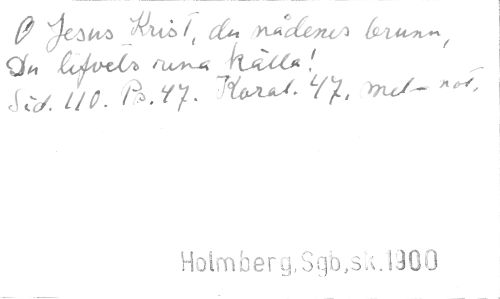 O Jesus Krist, du nådenes brunn,
Du lifvets rena källa!
Sid. 110. Ps. 47. Koral. 47, met not.
Holmberg, Sgb, sk. 1900